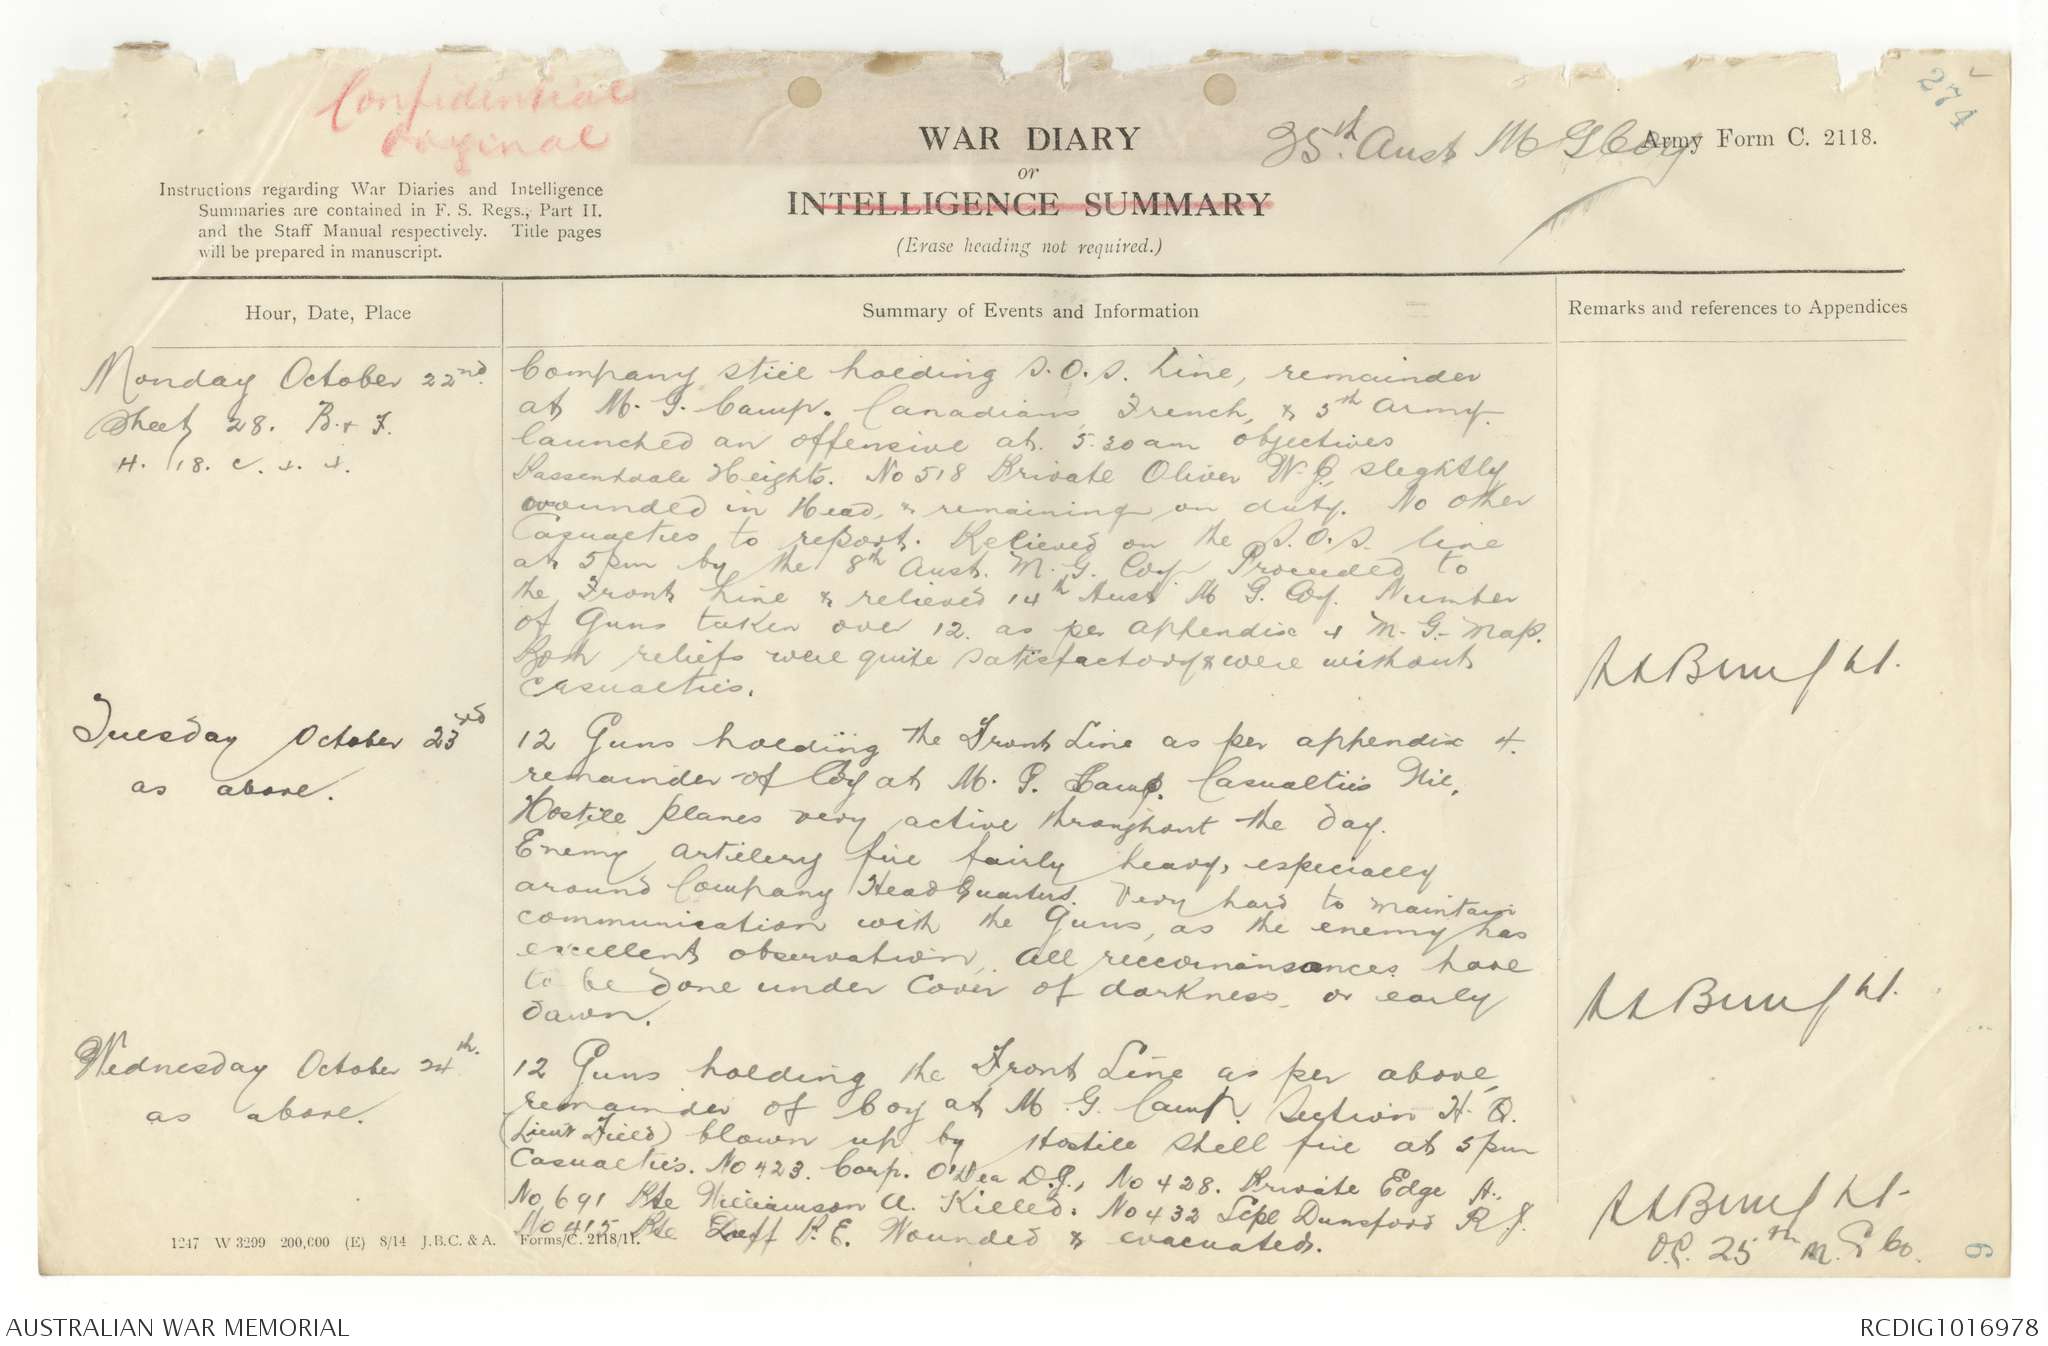 Confidential
Original
274
WAR DIARY
or
INTELLIGENCE SUMMARY
(Erase heading not required.)
25th Aust M G Coy
Army Form C. 2118.
Instructions regarding War Diaries and Intelligence
Summaries are contained in F. S. Regs., Part II.
and the Staff Manual respectively. Title pages
will be prepared in manuscript.
Hour, Date, Place
Summary of Events and Information
Remarks and references to Appendices
Monday October 22nd.
Sheet 28. B. & F.
H. 18. c. x. x.
Company still holding S.O.S. Line, remainder
at M. G. Camp. Canadians, French, & 5th Army
launched an offensive at 5.30 am objectives
Passendale Heights. No 518 Private Oliver W. J., slightly
wounded in Head, & remaining on duty. No other
Casualties to report. Relieved on the S.O.S. line
at 5 pm by the 8th Aust. M. G. Coy. Proceeded to
the Front Line & relieved 14th Aust M G. Coy. Number
of Guns taken over 12. as per appendix 4 M. G. Map.
Both reliefs were quite satisfactory & were without
casualties.
Tuesday October 23rd
as above.
12 Guns holding the Front Line as per appendix 4.
remainder of Coy at M. G. Camp. Casualties Nil.
Hostile planes very active throughout the day.
Enemy artillery fire fairly heavy, especially
around Company Head Quarters. Very hard to maintain
communication with the Guns, as the enemy has
excellent observation, all reccornansances have
to be done under cover of darkness, or early
dawn.
Wednesday October 24th.
as above.
12 Guns holding the Front Line as per above,
remainder of Coy at M. G. Camp. Section H. Q.
(Lieut Field) blown up by Hostile shell fire at 5 pm
Casualties. No 423. Corp. O'Dea D. J., No 428. Private Edge A.
No 691 Pte Williamson A. Killed. No 432 Lcpl Dunsford R. J.
No 415 Pte P. E. Wounded & evacuated.
Lt.
Lt.
Lt.
O.C. 25th M. G Co.
1247 W 3299 200,000 (E) 8/14 J.B.C. & A. Forms/C. 2118/11.
9
AUSTRALIAN WAR MEMORIAL
RCDIG1016978